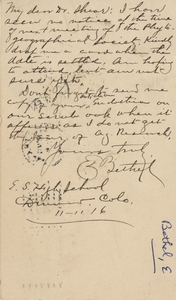 My dear Dr. Shear: I have
seen no notice of the time
of next meeting of the Phyto
Society Kindly
drop me a card when the
date is settled. Am hoping
to attend but am not
sure yet.
Don't forget to send me
copy of your
on our scrub work when it
appears as I do not get
the Jour. of Ag Research.
Yours truly,
E Bethel
E. S. High School
Denver Colo.
11-11-16
Bethel, E